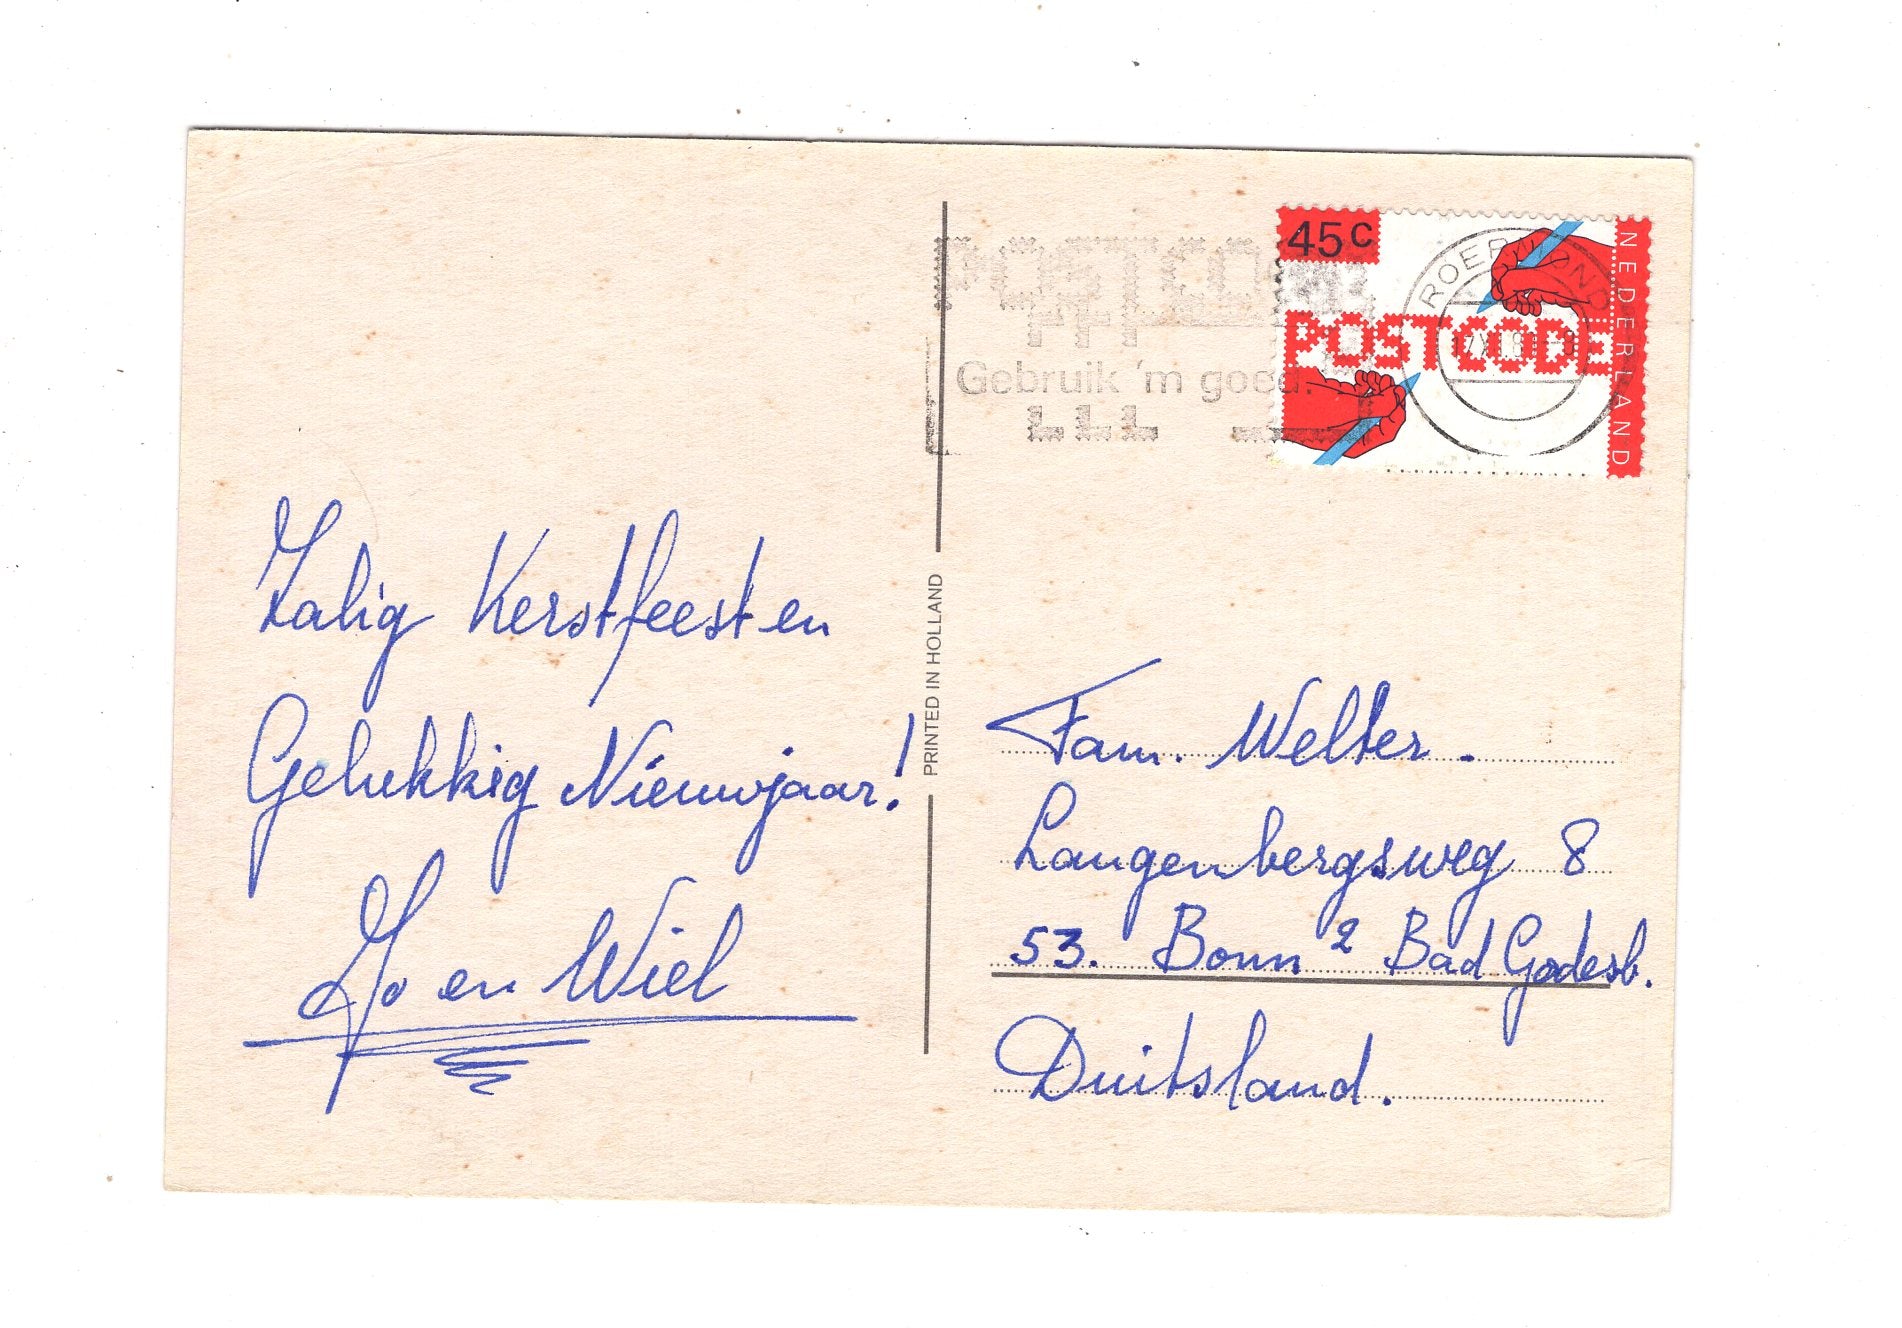 Zalig Kerstfeest en
Gelukkig Nieuwjaar!
Jo en Wiel
PRINTED IN HOLLAND
POSTCODE
Gebruik 'm goed.
45c
POSTCODE
NEDERLAND
ROERMOND
Fam. Welter.
Langenbergsweg 8
53. Bonn 2 Bad Godesb.
Duitsland.